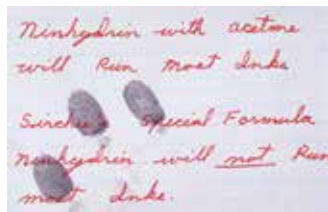 Ninhydrin with acetone
will Run most Inks
Sirchie's Special Formula
Ninhydrin will not Run
most Inks.